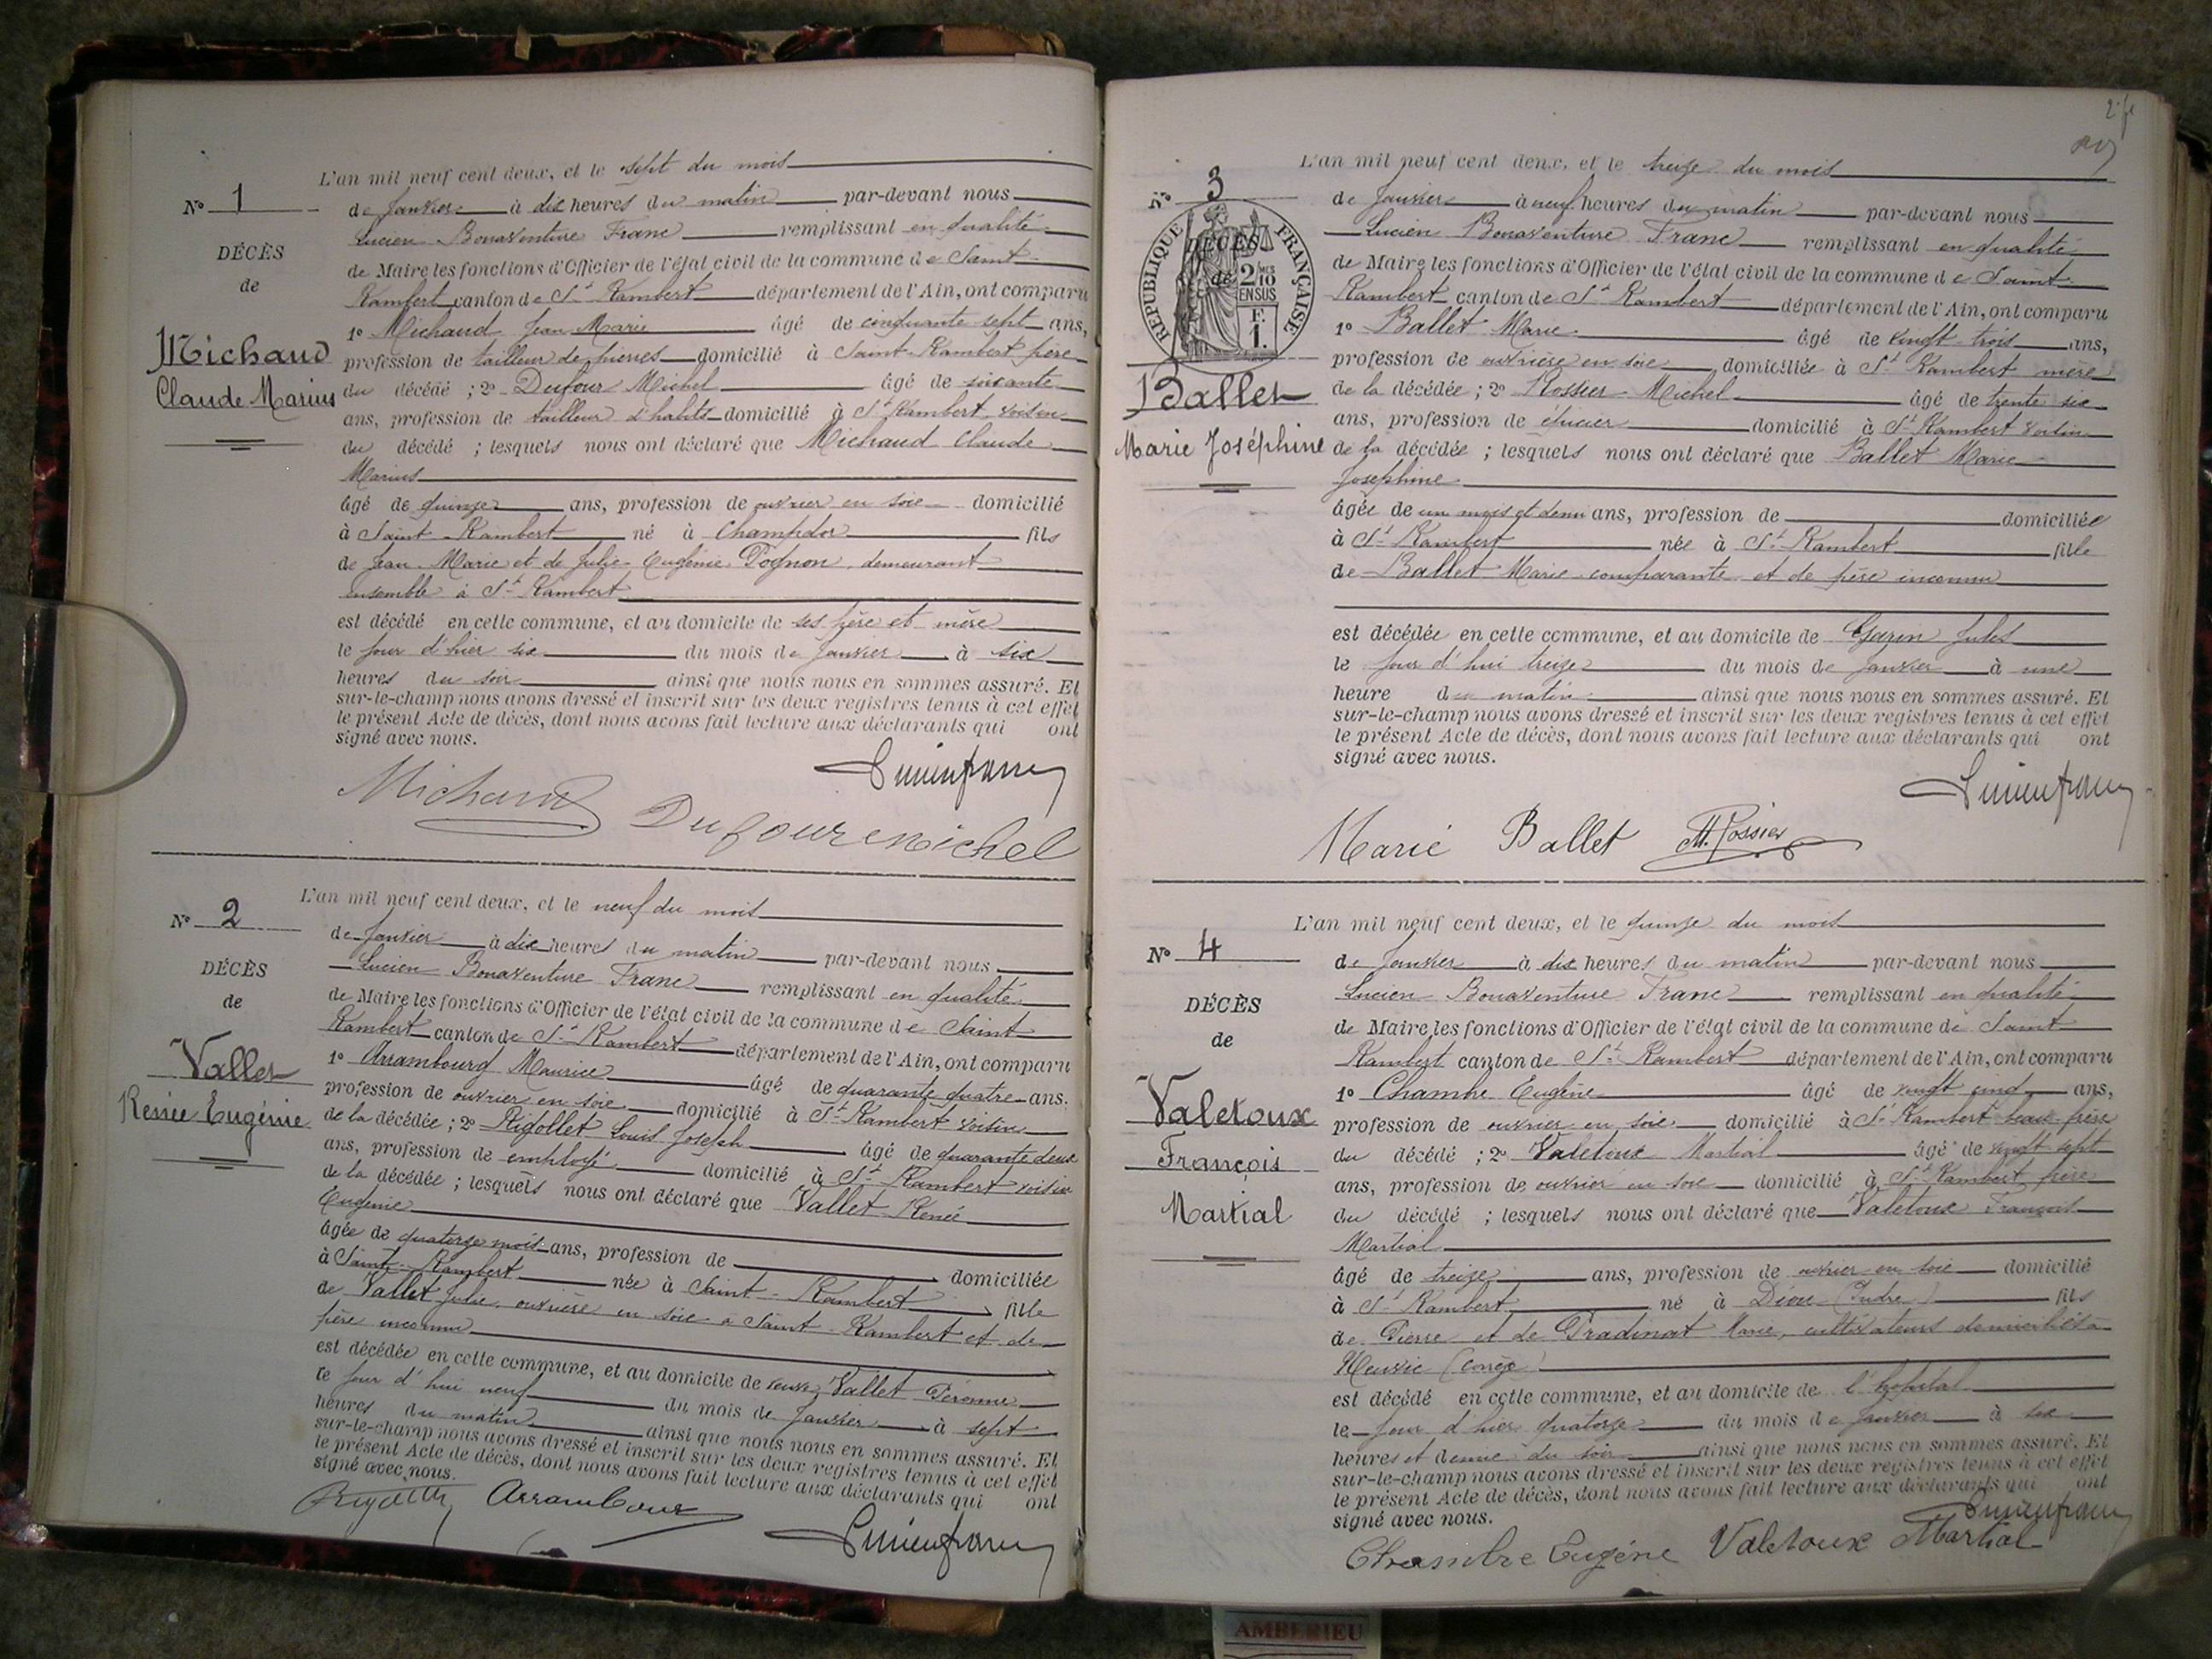 L'an mil neuf cent deux, et le sept du mois
N° 1
de Janvier à dix heures du matin par-devant nous
Lucien Bonaventure Franc remplissant en qualité
DÉCÈS
de Maire les fonctions d'Officier de l'état civil de la commune de Saint
de
Rambert canton de St Rambert département de l'Ain, ont comparu
1° Michaud Jean Marie âgé de cinquante sept ans,
Michaud
profession de tailleur de pierres domicilié à Saint-Rambert père
Claude Marius
du décédé ; 2° Dufour Michel âgé de soixante
ans, profession de tailleur d'habits domicilié à St Rambert voisin
du décédé ; lesquels nous ont déclaré que Michaud Claude
Marius
âgé de quinze ans, profession de ouvrier en soie domicilié
à Saint-Rambert né à Champdor fils
de Jean Marie et de Julie Eugénie Pognon demeurant
ensemble à St Rambert
est décédé en cette commune, et au domicile de ses père et mère
le jour d'hier six du mois de Janvier à six
heures du soir ainsi que nous nous en sommes assuré. Et
sur-le-champ nous avons dressé et inscrit sur les deux registres tenus à cet effet
le présent Acte de décès, dont nous avons fait lecture aux déclarants qui ont
signé avec nous.
Lucien franc
Michaud Dufour Michel
L'an mil neuf cent deux, et le neuf du mois
N° 2
de Janvier à dix heures du matin par-devant nous
Lucien Bonaventure Franc remplissant en qualité
DÉCÈS
de Maire les fonctions d'Officier de l'état civil de la commune de Saint
de
Rambert canton de St Rambert département de l'Ain, ont comparu
1° Arrambourg Maurice âgé de quarante quatre ans.
Vallet
profession de ouvrier en soie domicilié à St Rambert voisin
Renée Eugénie
de la décédée ; 2° Rigollet Louis Joseph âgé de quarante deux
ans, profession de employé domicilié à St Rambert voisin
de la décédée ; lesquels nous ont déclaré que Vallet Renée
Eugénie
âgée de quatorze mois ans, profession de domiciliée
à Saint-Rambert née à Saint-Rambert fille
de Vallet Julie ouvrière en soie à Saint-Rambert et de
père inconnu
est décédée en cette commune, et au domicile de veuve Vallet Péronne
le jour d'hui neuf du mois de Janvier à sept
heures du matin ainsi que nous nous en sommes assuré. Et
sur-le-champ nous avons dressé et inscrit sur les deux registres tenus à cet effet
le présent Acte de décès, dont nous avons fait lecture aux déclarants qui ont
signé avec nous.
Arrambour
Lucien franc
L'an mil neuf cent deux, et le treize du mois
N° 3
de Janvier à neuf heures du matin par-devant nous
Lucien Bonaventure Franc remplissant en qualité
RÉPUBLIQUE FRANÇAISE
DÉCÈS
de
2/10 EN SUS
F. 1.
de Maire les fonctions d'Officier de l'état civil de la commune de Saint
Rambert canton de St Rambert département de l'Ain, ont comparu
1° Ballet Marie âgé de vingt trois ans,
profession de ouvrière en soie domiciliée à St Rambert mère
Ballet
de la décédée ; 2° Rossier Michel âgé de trente six
ans, profession de épicier domicilié à St Rambert voisin
Marie Joséphine
de la décédée ; lesquels nous ont déclaré que Ballet Marie
Joséphine
âgée de un mois et demi ans, profession de domiciliée
à St Rambert née à St Rambert fille
de Ballet Marie comparante et de père inconnu
est décédée en cette commune, et au domicile de Garin Jules
le jour d'hui treize du mois de Janvier à une
heure du matin ainsi que nous nous en sommes assuré. Et
sur-le-champ nous avons dressé et inscrit sur les deux registres tenus à cet effet
le présent Acte de décès, dont nous avons fait lecture aux déclarants qui ont
signé avec nous.
Lucien franc
Marie Ballet M. Rossier
L'an mil neuf cent deux, et le quinze du mois
N° 4
de Janvier à dix heures du matin par-devant nous
Lucien Bonaventure Franc remplissant en qualité
DÉCÈS
de Maire les fonctions d'Officier de l'état civil de la commune de Saint
de
Rambert canton de St Rambert département de l'Ain, ont comparu
1° Chambre Eugène âgé de vingt cinq ans,
Valetoux
profession de ouvrier en soie domicilié à St Rambert beau-frère
François
du décédé ; 2° Valetoux Martial âgé de vingt sept
ans, profession de ouvrier en soie domicilié à St Rambert frère
Martial
du décédé ; lesquels nous ont déclaré que Valetoux François
Martial
âgé de treize ans, profession de ouvrier en soie domicilié
à St Rambert né à Diou (Indre) fils
de Pierre et de Pradinat Marie, cultivateurs domiciliés à
Neuvic (Corrèze)
est décédé en cette commune, et au domicile de l'hopital
le jour d'hier quatorze du mois de Janvier à six
heures et demie du soir ainsi que nous nous en sommes assuré. Et
sur-le-champ nous avons dressé et inscrit sur les deux registres tenus à cet effet
le présent Acte de décès, dont nous avons fait lecture aux déclarants qui ont
signé avec nous.
Lucien franc
Chambre Eugéne Valetoux Martial
AMBERIEU